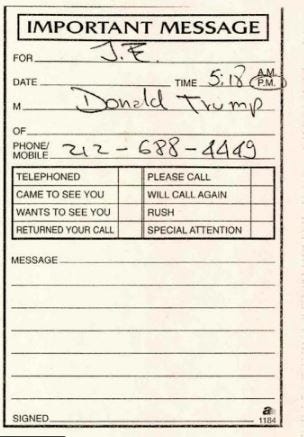 IMPORTANT MESSAGE
FOR J.E.
DATE TIME 5:18 A.M. P.M.
M Donald Trump
OF
PHONE/ MOBILE 212-688-4449
TELEPHONED PLEASE CALL
CAME TO SEE YOU WILL CALL AGAIN
WANTS TO SEE YOU RUSH
RETURNED YOUR CALL SPECIAL ATTENTION
MESSAGE
SIGNED
a 1184